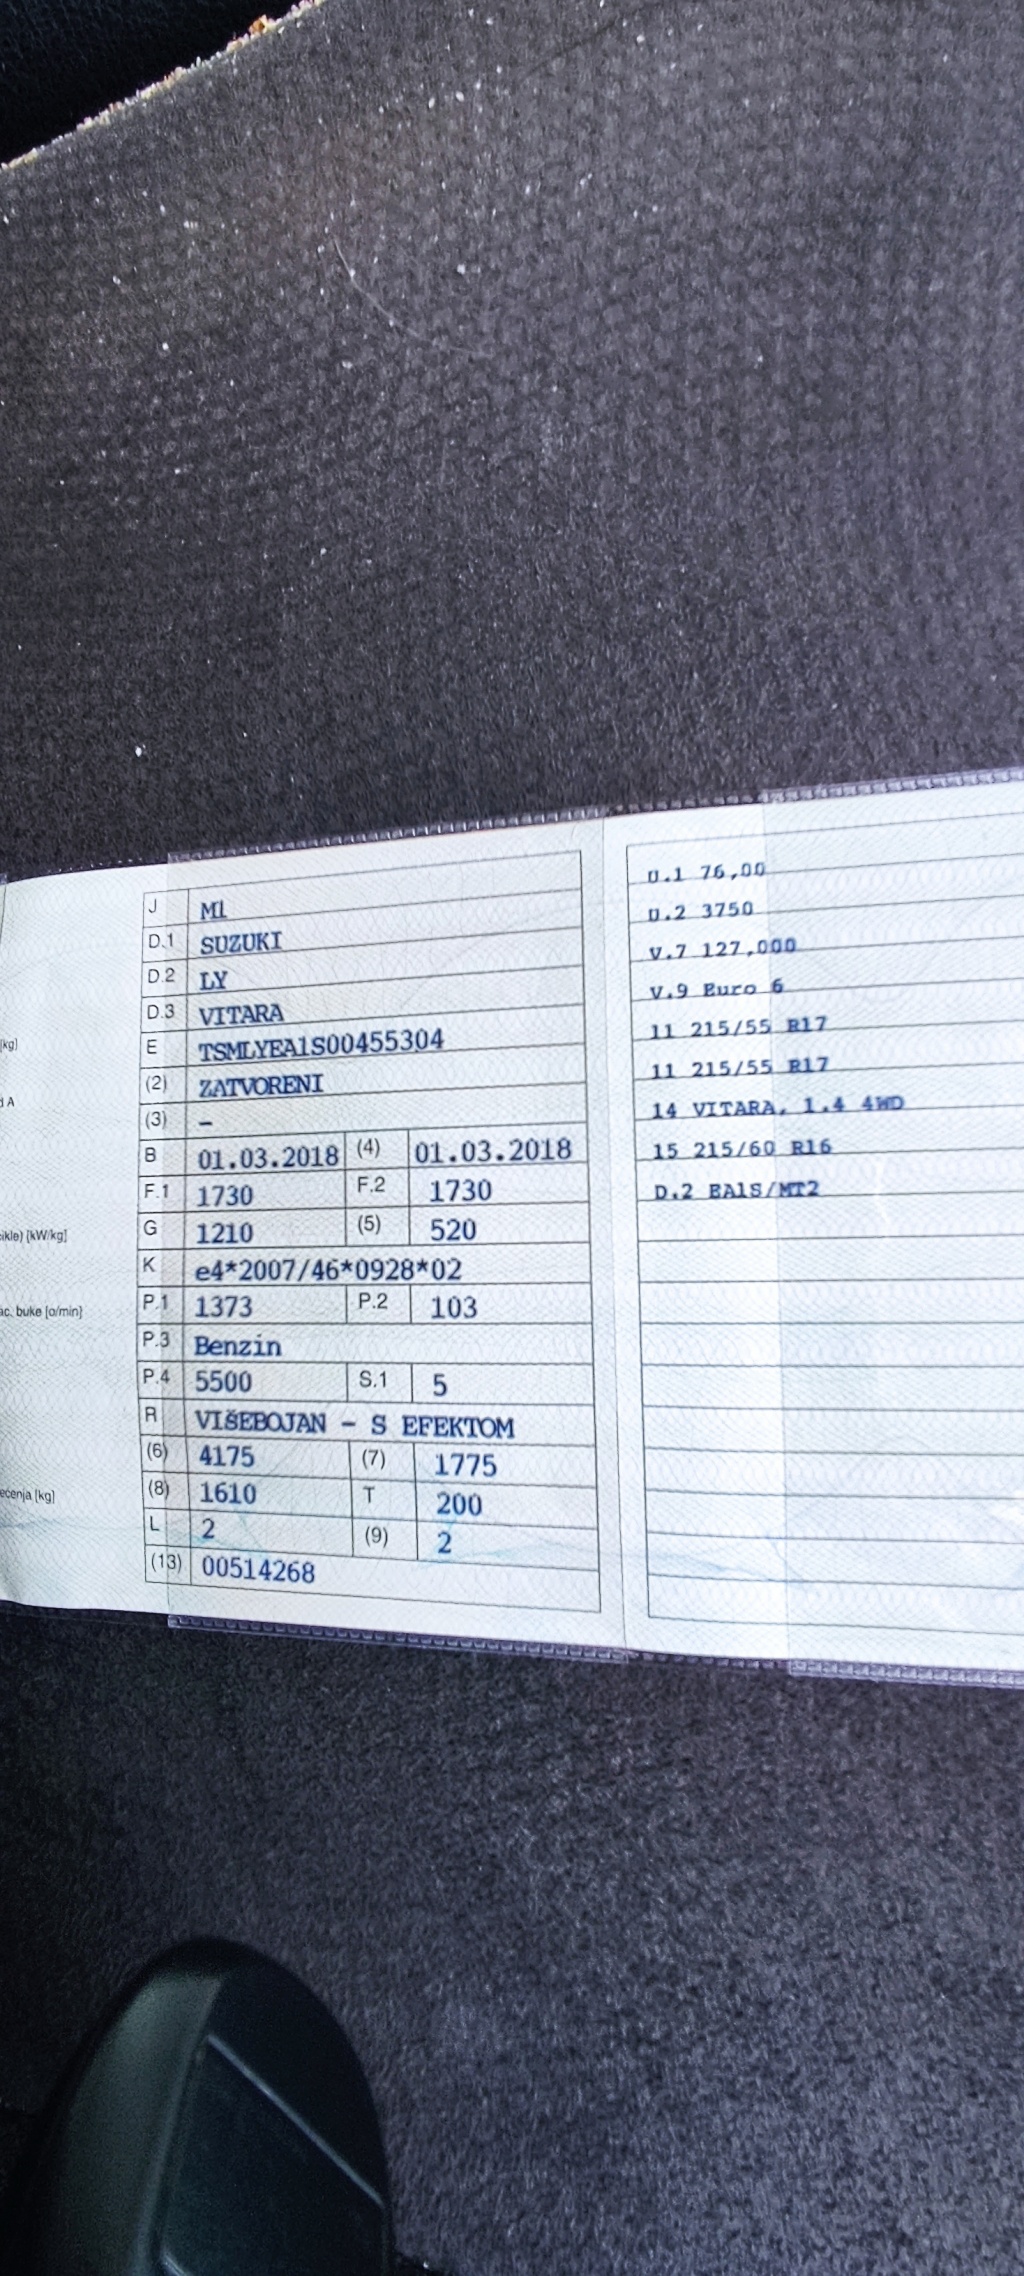 [kg]
d A
ikle) [kW/kg]
ac. buke [o/min]
ećenja [kg]
J M1
D.1 SUZUKI
D.2 LY
D.3 VITARA
E TSMLYEA1S00455304
(2) ZATVORENI
(3) –
B 01.03.2018 (4) 01.03.2018
F.1 1730 F.2 1730
G 1210 (5) 520
K e4*2007/46*0928*02
P.1 1373 P.2 103
P.3 Benzin
P.4 5500 S.1 5
R VIŠEBOJAN – S EFEKTOM
(6) 4175 (7) 1775
(8) 1610 T 200
L 2 (9) 2
(13) 00514268
U.1 76,00
U.2 3750
V.7 127,000
V.9 Euro 6
11 215/55 R17
11 215/55 R17
14 VITARA, 1.4 4WD
15 215/60 R16
D.2 EA1S/MT2